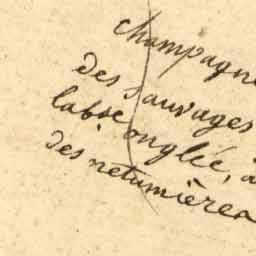 champagne
des sauvages
labbé onglée, à
des netumières